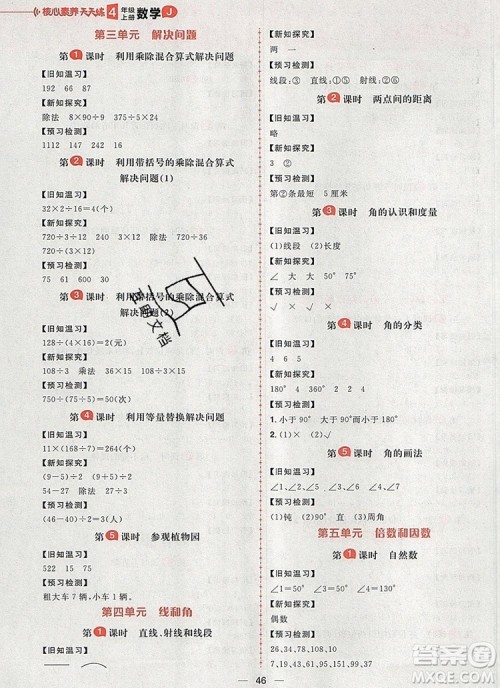 核心素养天天练 4年级上册 数学 J
第三单元 解决问题
第1课时 利用乘除混合算式解决问题
【旧知温习】
192 66 87
【新知探究】
除法 8×90÷9 375÷5×24
【预习检测】
1112 147 16×2 240
第2课时 利用带括号的乘除混合算式
解决问题(1)
【旧知温习】
32×2÷16=4(个)
【新知探究】
720÷3÷12 720÷12÷3 除法 720÷(3×12)
720÷(3×12)
【预习检测】
75 61 630 5
第3课时 利用带括号的乘除混合算式
解决问题(2)
【旧知温习】
128÷(4×16)=2(元)
【新知探究】
108÷3 乘法 108÷3×15
【预习检测】
750÷(75÷5)=50(次)
第4课时 利用等量替换解决问题
【旧知温习】
11×(18÷3)=66(个)
【新知探究】
(9÷5)÷2 (9-5)÷2
52-27 27÷5 除法 27÷5
【预习检测】
(46-40)÷2=3(个)
第5课时 参观植物园
【旧知温习】
522 15 75
【预习检测】
租大车7辆,小车1辆。
第四单元 线和角
第1课时 直线、射线和线段
【旧知温习】
【新知探究】
1 2
【预习检测】
线段:③ 直线:①⑤ 射线:②④⑥
第2课时 两点间的距离
【旧知温习】
略
【新知探究】
3 ②
【预习检测】
第②条最短 5厘米
第3课时 角的认识和度量
【旧知温习】
(1)线段 (2)长度
【新知探究】
∠ 大 大 50°
【预习检测】
√ √ × √
第4课时 角的分类
【旧知温习】
4 6 5
【新知探究】
180° 360° 2 4
【预习检测】
1.小于 大于 小于 2.√ × √
第5课时 角的画法
【旧知温习】
∠1、∠5、∠9 ∠3、∠8 ∠2、∠4、
∠6、∠7、∠10
【预习检测】
(1)钝 (2)90° (3)周角
第五单元 倍数和因数
第1课时 自然数
【旧知温习】
∠1=50° ∠2=40° ∠3=140° ∠4=50°
【新知探究】
偶数
【预习检测】
26、34、78、10、108
7、19、43、91、57、131
46
百思文档
答案圈